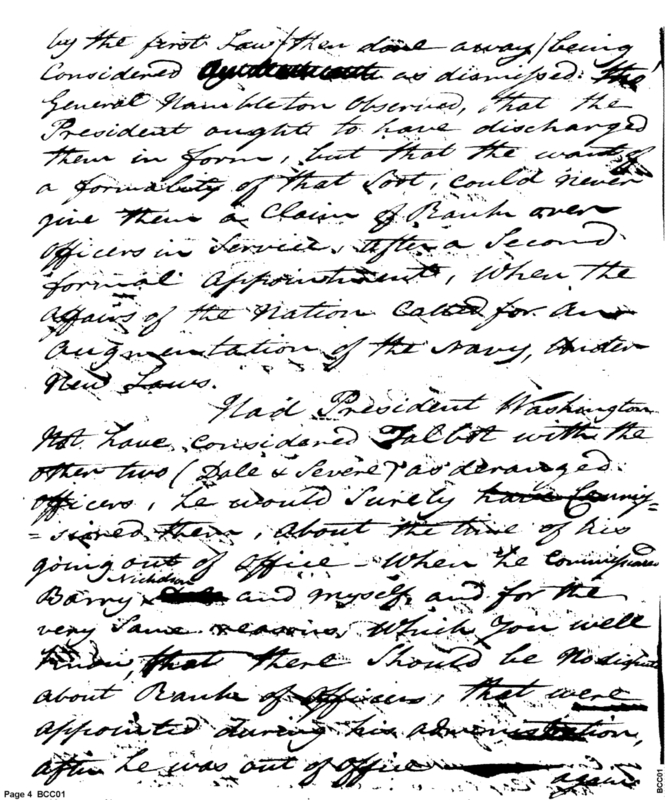 by the first Law (then done away) being
Considered as dismissed. The
General Hambleton Observed, that the
President ought to have discharged
them in form, but that the want of
a formality of that Sort, could never
give them a Claim of Rank over
Officers in Service, after a Second
formal Appointment, When the
affairs of the Nation Called for an
augmentation of the Navy, Under
New Laws.
Had President Washington
Not have considered Talbot with the
other two (Dale & Severe) as deranged
officers, he would Surely have Commis-
=sioned them, about the time of his
going out of office - When he Commissioned
Nicholson
Barry and myself, and for the
very Same reasons, Which You well
know, that there Should be No dispute
about Rank of Officers, that were
appointed during his administration,
after he was out of office
again
Page 4 BCC01
BCC01